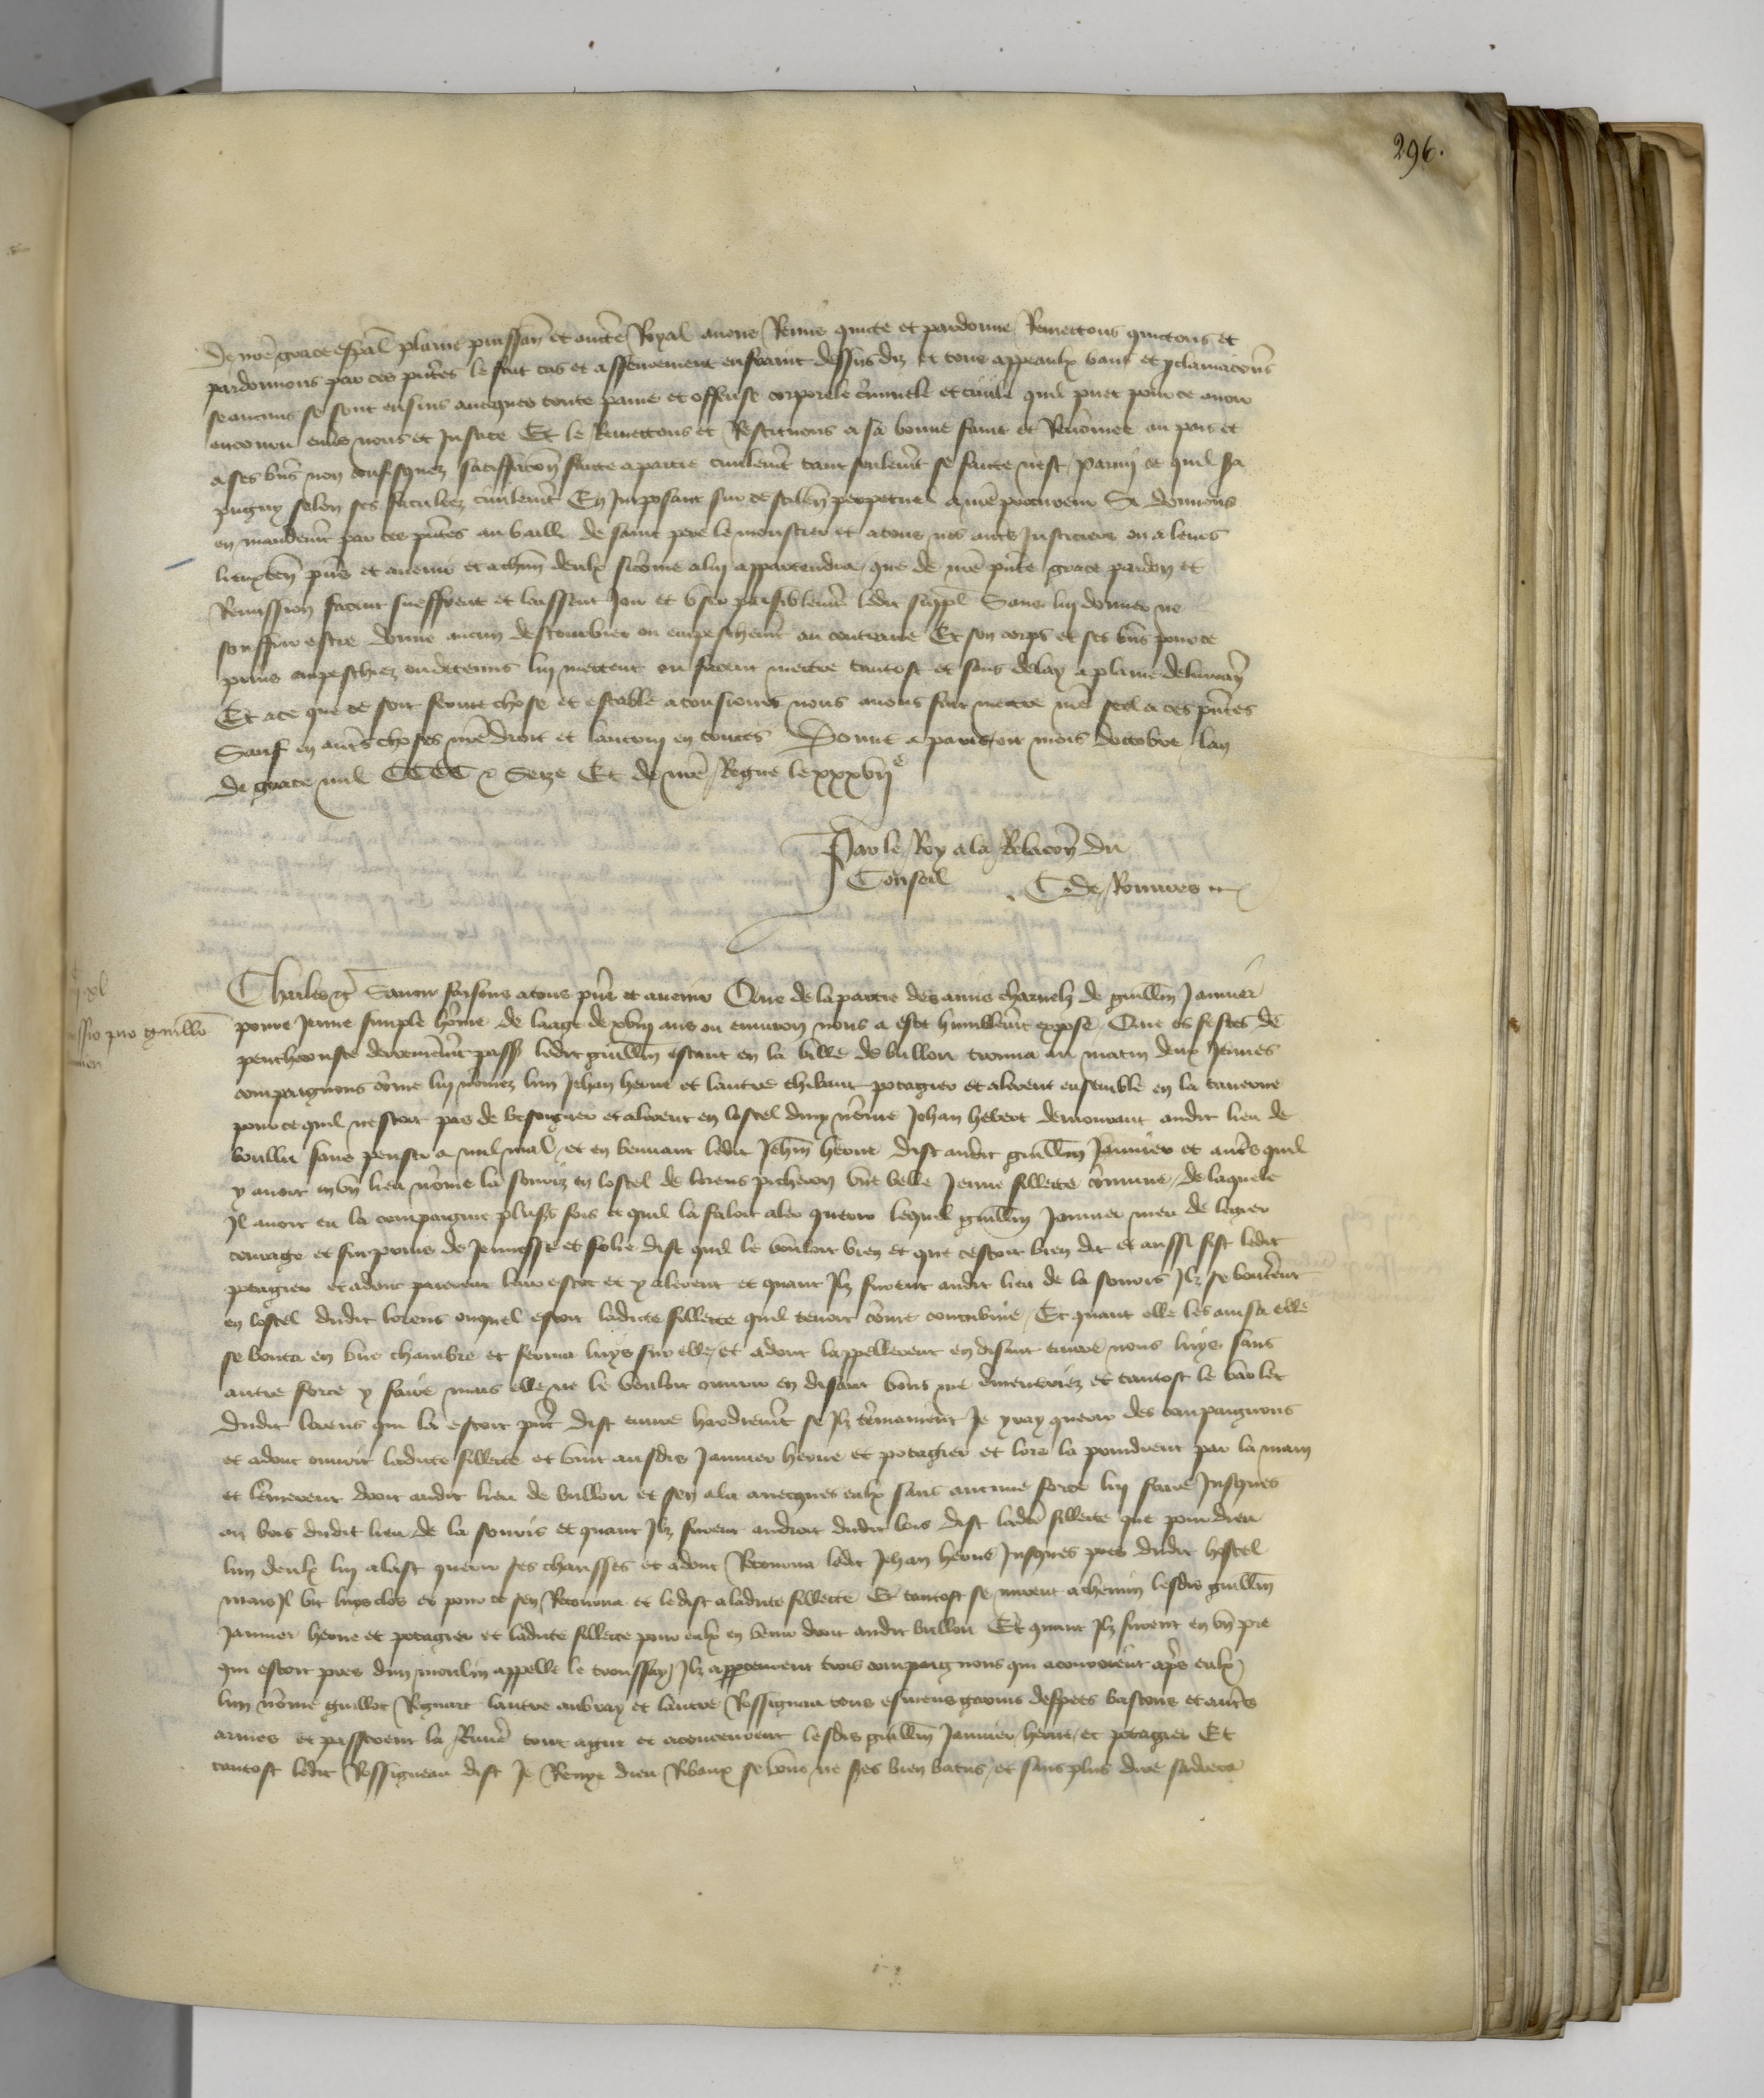 296.
De nr̄e grace esp̄al plaine puissan̄ et auct̄e Royal avons Remis quicté et pardonné Remettons quictons et
pardonnons par ces pn̄tes le fait cas et asseurement enfraint dessus diz et tous appeaulx bans et p̄clamacōns
se aucuns se sont ensuis avecques toute paine et offense corporele cr̄iminele et civile quil puet pour ce avoir
encouru env̄s nous et Justice Et le Remettons et Restituons a sa bonne fame et Renōmee au pais et
a ses biēs non confisquez satiffacōn faicte a partie civilem̄t tant seulem̄t se faicte nest parmi ce quil
selon ses facultez civilem̄t En Imposant sur ce scilen̄ perpetuel a nr̄e procureur Si donnons
en mandem̄t par ces pn̄tes au bailli de saint pere le moustier et a tous nos aut̄s Justiciers ou a leurs
lieuxten̄ pn̄s et avenir et a chūn deulx sicōme a lui appartendra que de nr̄e pn̄te grace pardon et
Remission facent sueffrent et laissent Joir et user paisiblem̄t ledit suppl̄ Sans lui donner ne
souffrir estre donné aucun destourbier ou empeschem̄t au contraire Et son corps et ses biēs pour ce
prins empeschiez ou detenus lui mettent ou facent mettre tantost et sans delay a plaine delivran̄
Et a ce que ce soit ferme chose et estable a tousiours nous avons fait mettre nr̄e seel a ces pn̄tes
Sauf en aut̄s choses nr̄e droit et lautruy en toutes Donné a paris ou mois doctobre lan
de grace mil CCCC & Seize Et de nr̄e Regne le xxxvije
Par le Roy a la Relacōn du
Conseil C. de Rouvres
Charles &c̄ Savoir faisons a tous pn̄s et avenir Que de la partie des amis charnelz de guill̄m Janvier
ssio pro guill̄o
povre Jeune simple hōme de laage de xviij ans ou environ nous a esté humblem̄t exposé Que es festes de
penthecouste derrenierem̄t passé ledit guill̄m estant en la ville de bullou trouva au matin deux Jeunes
compaignons cōme lui nōmez lun Jehan herve et lautre thibaut potagier et alerent ensemble en la taverne
pour ce quil nestoit pas de besongner et alerent en lostel dun nōmé Jehan hebert demourant audit lieu de
boullu sans penser a nul mal et en beuvant ledit Jeh̄n herve dist audit guill̄m Janvier et aut̄s quil
y avoit en un lieu nōmé la souriz en lostel de lorens picheron une belle Jeune fillette cōmune de laquele
Il avoit eu la compaignie pluss̄ fois et quil la faloit aler querir lequel guill̄m Janvier meu de legier
courage et surprins de Jeunesse et folie dist quil le vouloit bien et que cestoit bien dit et aussi fist ledit
potagier et adonc paierent leur escot et y alerent et quant Ilz furent audit lieu de la souris Ilz se bouterent
en lostel dudit lorens ouquel estoit ladicte fillette quil tenoit cōme concubine Et quant elle les avisa elle
se bouta en une chambre et ferma luys sur elle et adonc lappellerent en disant euvre nous luys sans
autre force y faire mais elle ne le vouloit ouvrir en disant vous me et tantost le varlet
dudit lorens qui la estoit pn̄t dist euvre hardiem̄t se Ilz tēmainent Je yray querir des compaignons
et adonc ouvrit ladicte fillette et vint ausdis Janvier herve et potagier et lors la prindrent par la main
et lēmenerent droit audit lieu de bullou et sen ala avecques eulx sans aucune force lui faire Jusques
au bois dudit lieu de la souris et quant Ilz furent audroit dudit bois dist ladc̄e fillette que pour dieu
lun deulx lui alast querir ses chausses et adonc Retourna ledit Jehan herve Jusques pres dudit hostel
mais Il vit luys clos et pour ce sen Retourna et le dist a ladicte fillette Et tantost se mirent a chemin lesdis guill̄m
Janvier herve et potagier et ladicte fillette pour eulx en venir droit audit bullou Et quant Ilz furent en un pré
qui estoit pres dun moulin appellé le troussay Ilz apperceurent trois compaignons qui acouroient ap̄s eulx
lun nōmé guillot Regnart lautre aubray et lautre Rossigneau tous esmeuz garnis despees bastons et aut̄s
armes et passerent la Riviē tout a gué et aconceurent lesdis guill̄m Janvier herve et potagier Et
tantost ledit Rossigneau dist Je Renye dieu Ribaux se vous ne ses bien batus et sans plus dire